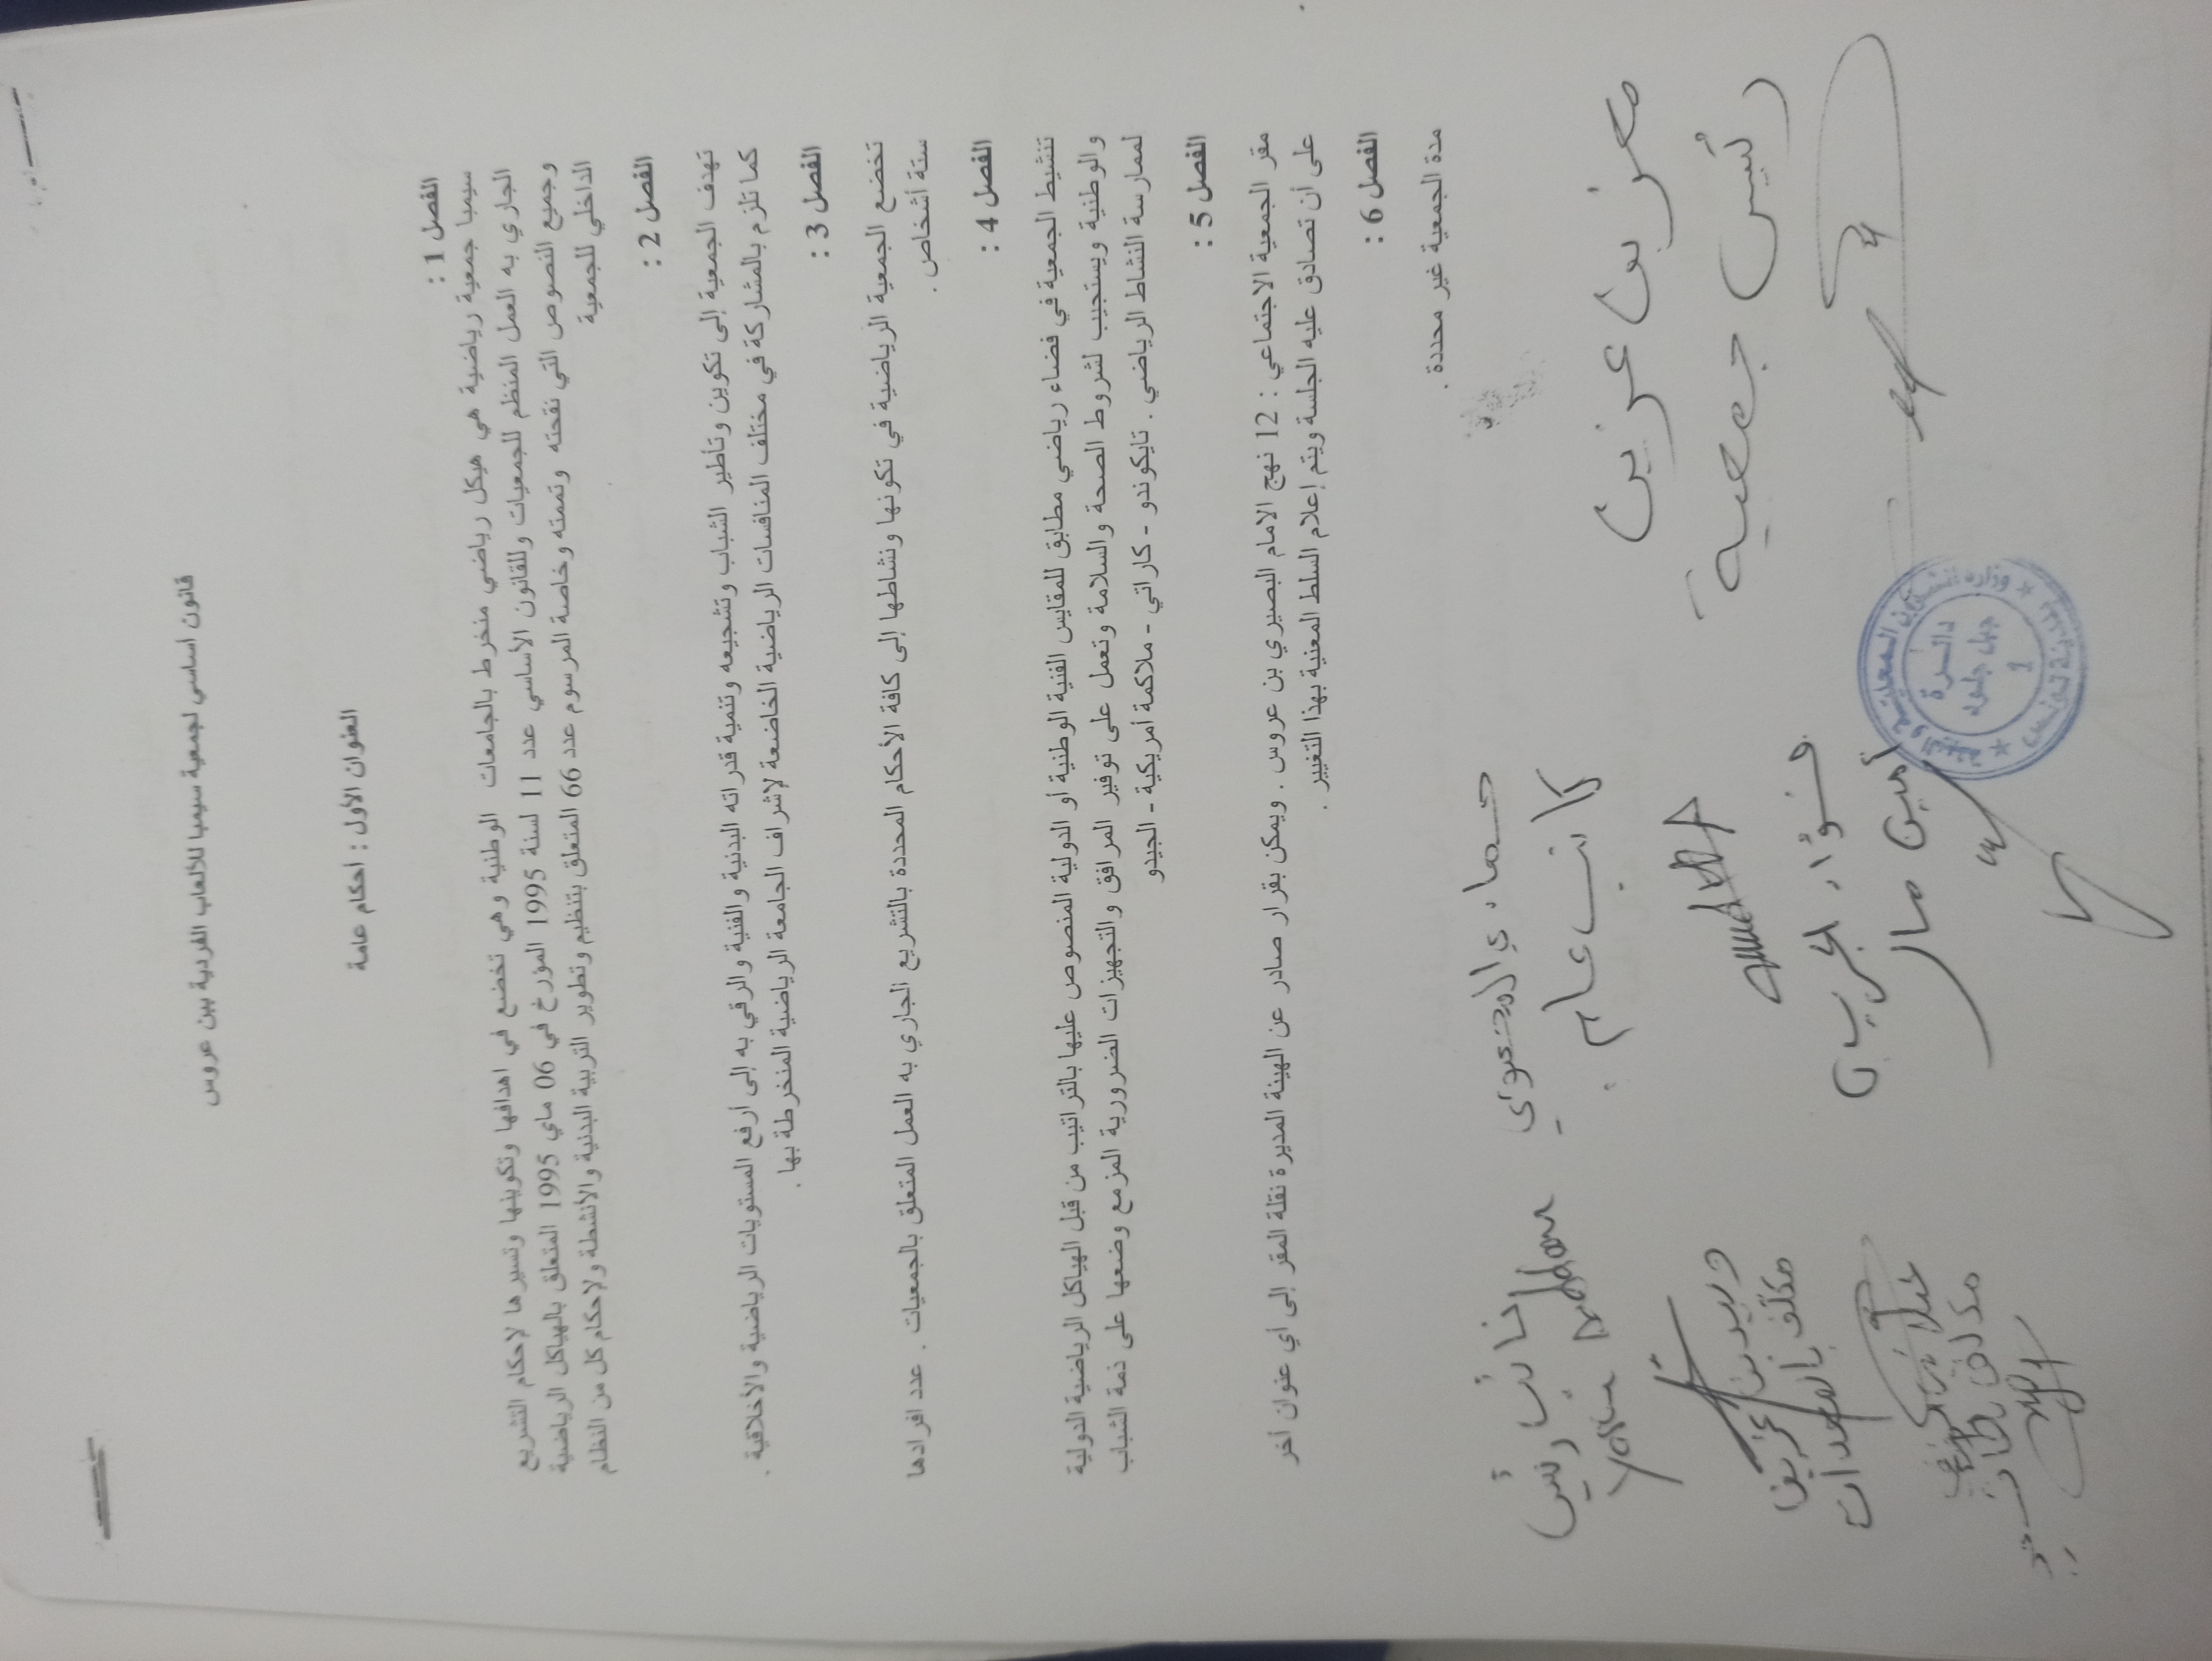 قانون اساسي لجمعية سيمبا للألعاب الفردية ببن عروس
العنوان الأول : احكام عامة
الفصل 1 :
سيمبا جمعية رياضية هي هيكل رياضي منخرط بالجامعات الوطنية وهي تخضع في اهدافها وتكوينها وتسيرها لاحكام التشريع
الجاري به العمل المنظم للجمعيات وللقانون الأساسي عدد 11 لسنة 1995 المؤرخ في 06 ماي 1995 المتعلق بالهياكل الرياضية
وجميع النصوص التي نقحته وتممته وخاصة المرسوم عدد 66 المتعلق بتنظيم وتطوير التربية البدنية والأنشطة ولاحكام كل من النظام
الداخلي للجمعية
الفصل 2 :
تهدف الجمعية إلى تكوين وتأطير الشباب وتشجيعه وتنمية قدراته البدنية والفنية والرقي به إلى أرفع المستويات الرياضية والأخلاقية .
كما تلزم بالمشاركة في مختلف المنافسات الرياضية الخاضعة لإشراف الجامعة الرياضية المنخرطة بها .
الفصل 3 :
تخضع الجمعية الرياضية في تكونها ونشاطها إلى كافة الأحكام المحددة بالتشريع الجاري به العمل المتعلق بالجمعيات . عدد افرادها
ستة أشخاص .
الفصل 4 :
تنشيط الجمعية في فضاء رياضي مطابق للمقايس الفنية الوطنية أو الدولية المنصوص عليها بالتراتيب من قبل الهياكل الرياضية الدولية
والوطنية ويستجيب لشروط الصحة والسلامة وتعمل على توفير المرافق والتجهيزات الضرورية المزمع وضعها على ذمة الشباب
لممارسة النشاط الرياضي . تايكوندو - كاراتي - ملاكمة أمريكية - الجيدو
الفصل 5 :
مقر الجمعية الاجتماعي : 12 نهج الامام البصيري بن عروس . ويمكن بقرار صادر عن الهيئة المديرة نقلة المقر إلى أي عنوان اخر
على أن تصادق عليه الجلسة ويتم إعلام السلط المعنية بهذا التغيير .
الفصل 6 :
مدة الجمعية غير محددة .
معز بن عزيز
رئيس جمعية
كاتب عام
فؤاد
أمين مال
نائب رئيس
مكلف بالمعدات
دائرة
جبل جلود
1